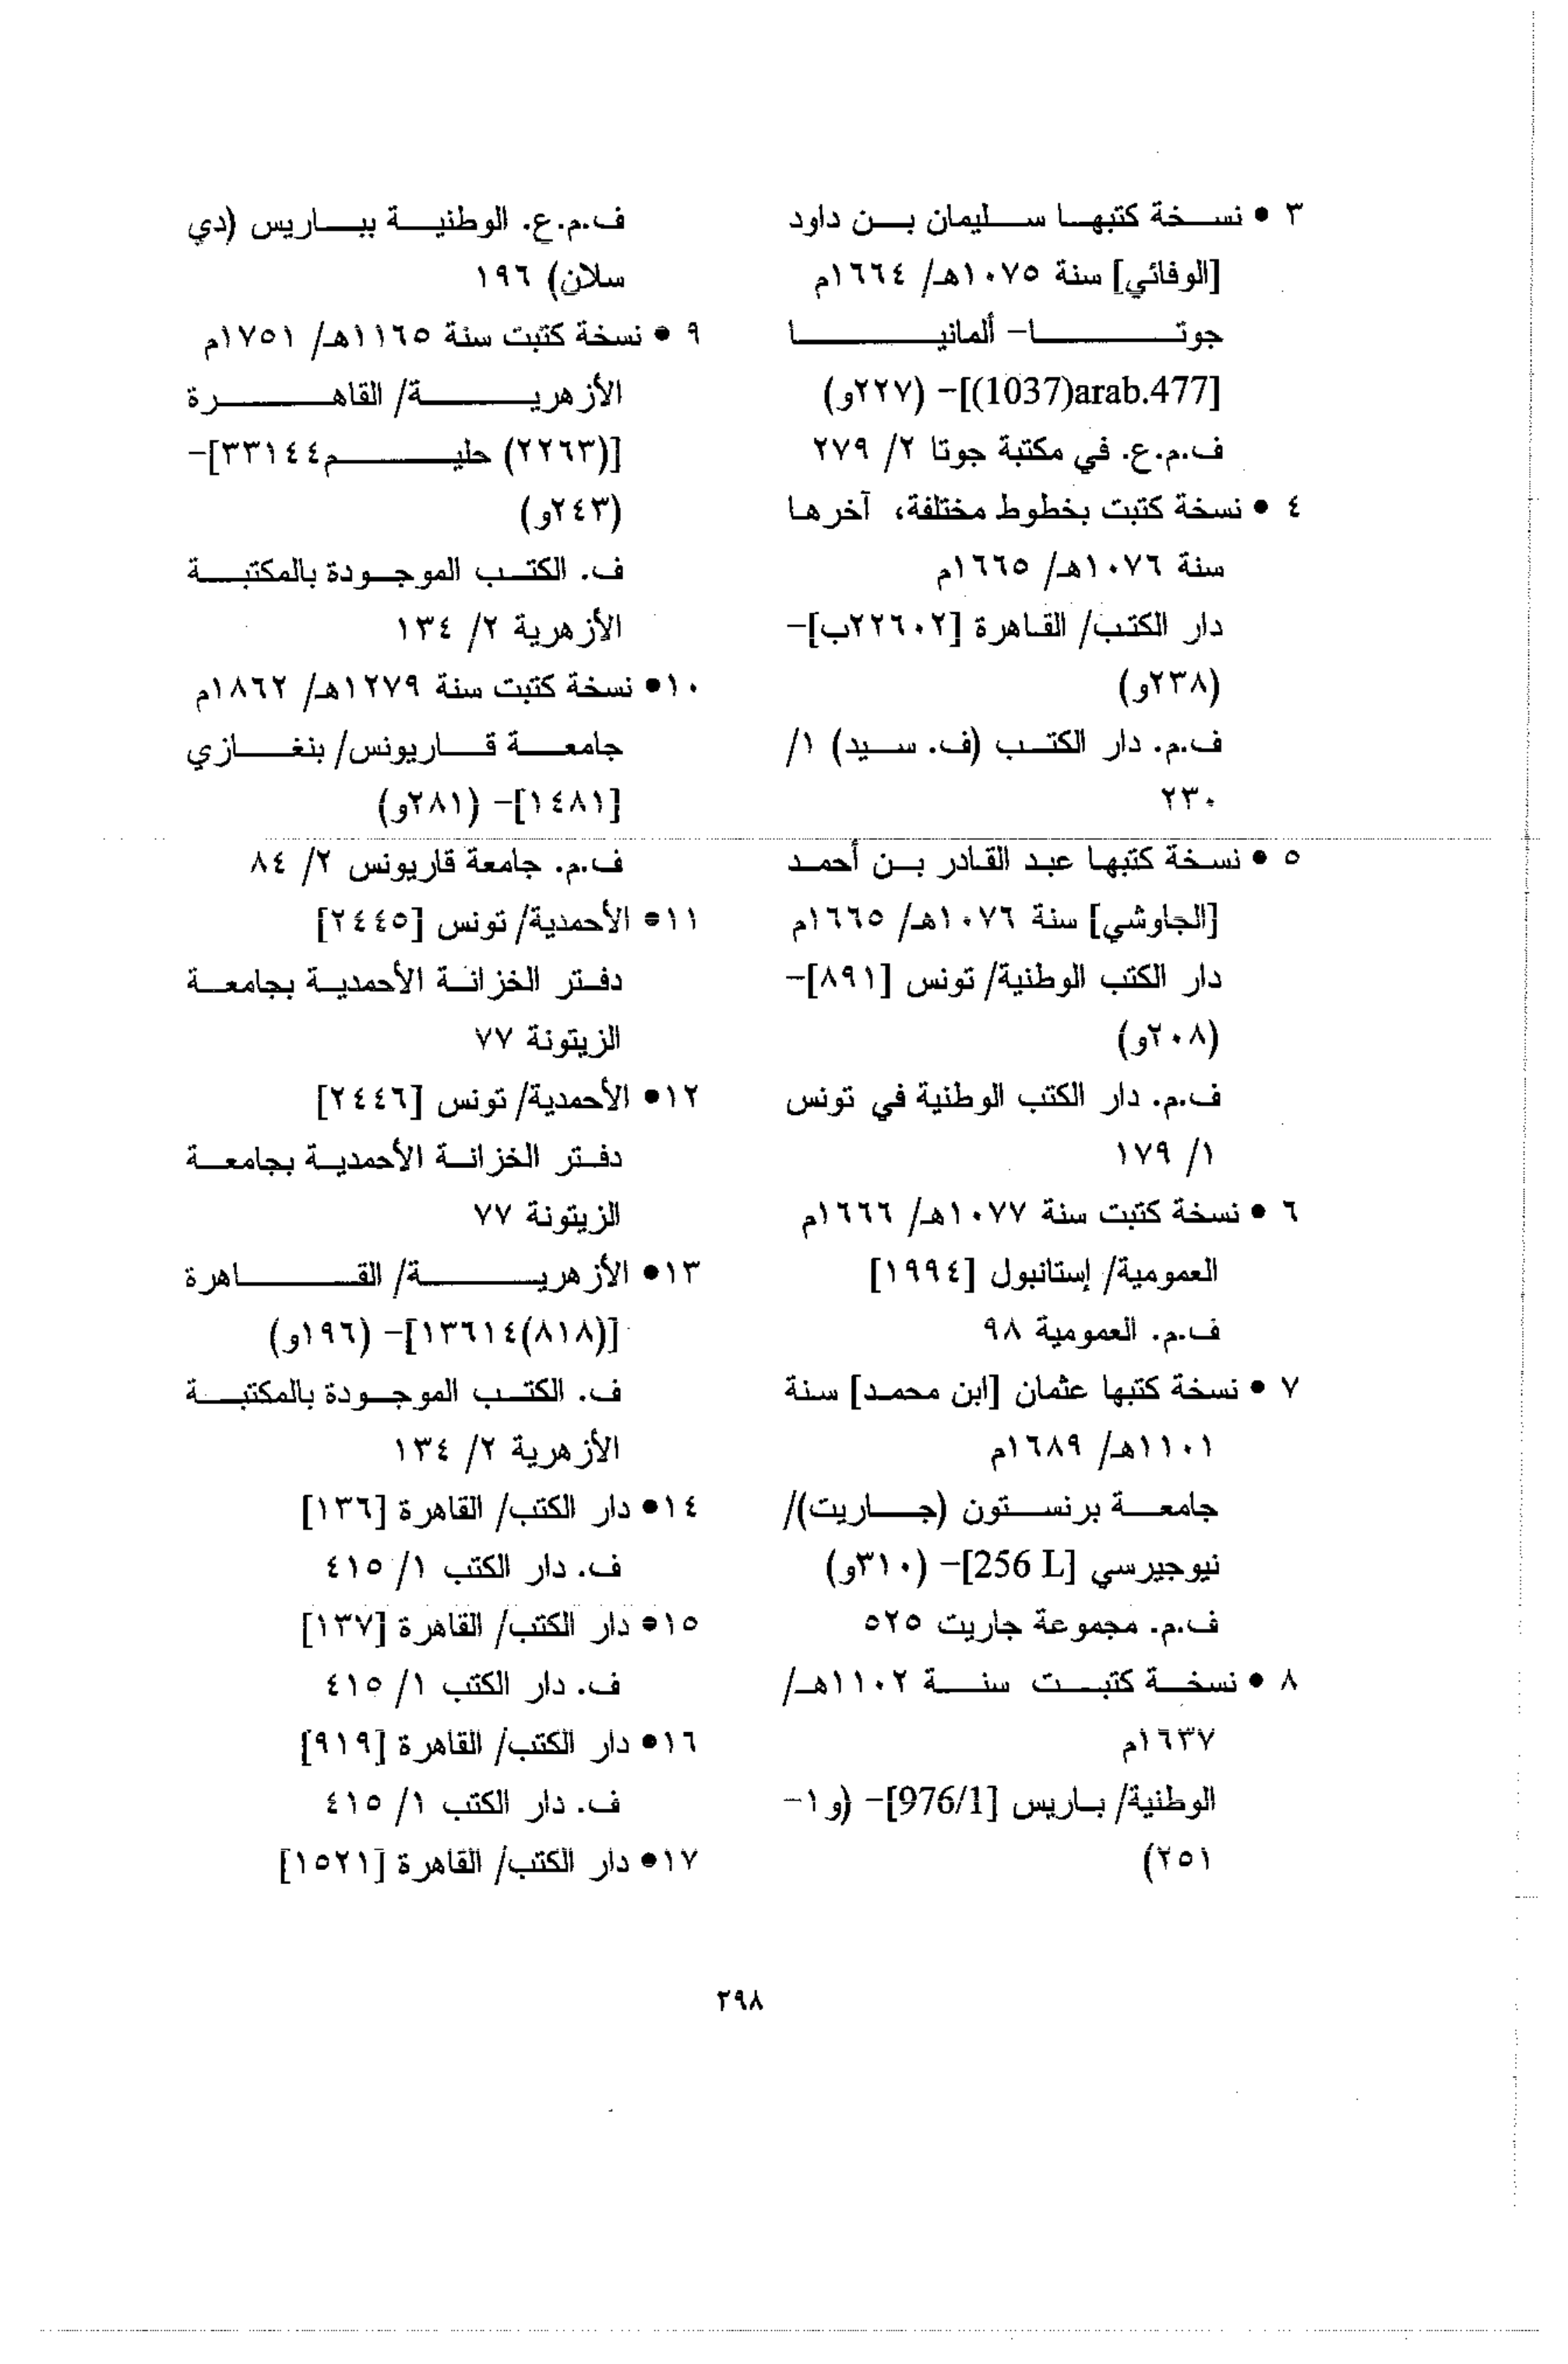 ٣ • نسخة كتبها سليمان بن داود
[الوفائي] سنة ١٠٧٥هـ/ ١٦٦٤م
جوتا- ألمانيا
[(1037)arab.477]- (٢٢٧و)
ف.م.ع. في مكتبة جوتا ٢/ ٢٧٩
٤ • نسخة كتبت بخطوط مختلفة، آخرها
سنة ١٠٧٦هـ/ ١٦٦٥م
دار الكتب/ القاهرة [٢٢٦٠٢ب]-
(٢٣٨و)
ف.م. دار الكتب (ف. سيد) ١/
٢٣٠
٥ • نسخة كتبها عبد القادر بن أحمد
[الجاوشي] سنة ١٠٧٦هـ/ ١٦٦٥م
دار الكتب الوطنية/ تونس [٨٩١]-
(٢٠٨و)
ف.م. دار الكتب الوطنية في تونس
١/ ١٧٩
٦ • نسخة كتبت سنة ١٠٧٧هـ/ ١٦٦٦م
العمومية/ إستانبول [١٩٩٤]
ف.م. العمومية ٩٨
٧ • نسخة كتبها عثمان [ابن محمد] سنة
١١٠١هـ/ ١٦٨٩م
جامعة برنستون (جاريت)/
نيوجيرسي [256 L]- (٣١٠و)
ف.م. مجموعة جاريت ٥٢٥
٨ • نسخة كتبت سنة ١١٠٢هـ/
١٦٣٧م
الوطنية/ باريس [976/1]- (و١-
٢٥١)
ف.م.ع. الوطنية بباريس (دي
سلان) ١٩٦
٩ • نسخة كتبت سنة ١١٦٥هـ/ ١٧٥١م
الأزهرية/ القاهرة
[(٢٢٦٣) حليم٣٣١٤٤]-
(٢٤٣و)
ف. الكتب الموجودة بالمكتبة
الأزهرية ٢/ ١٣٤
١٠• نسخة كتبت سنة ١٢٧٩هـ/ ١٨٦٢م
جامعة قاريونس/ بنغازي
[١٤٨١]- (٢٨١و)
ف.م. جامعة قاريونس ٢/ ٨٤
١١• الأحمدية/ تونس [٢٤٤٥]
دفتر الخزانة الأحمدية بجامعة
الزيتونة ٧٧
١٢• الأحمدية/ تونس [٢٤٤٦]
دفتر الخزانة الأحمدية بجامعة
الزيتونة ٧٧
١٣• الأزهرية/ القاهرة
[(٨١٨)١٣٦١٤]- (١٩٦و)
ف. الكتب الموجودة بالمكتبة
الأزهرية ٢/ ١٣٤
١٤• دار الكتب/ القاهرة [١٣٦]
ف. دار الكتب ١/ ٤١٥
١٥• دار الكتب/ القاهرة [١٣٧]
ف. دار الكتب ١/ ٤١٥
١٦• دار الكتب/ القاهرة [٩١٩]
ف. دار الكتب ١/ ٤١٥
١٧• دار الكتب/ القاهرة [١٥٢١]
٢٩٨